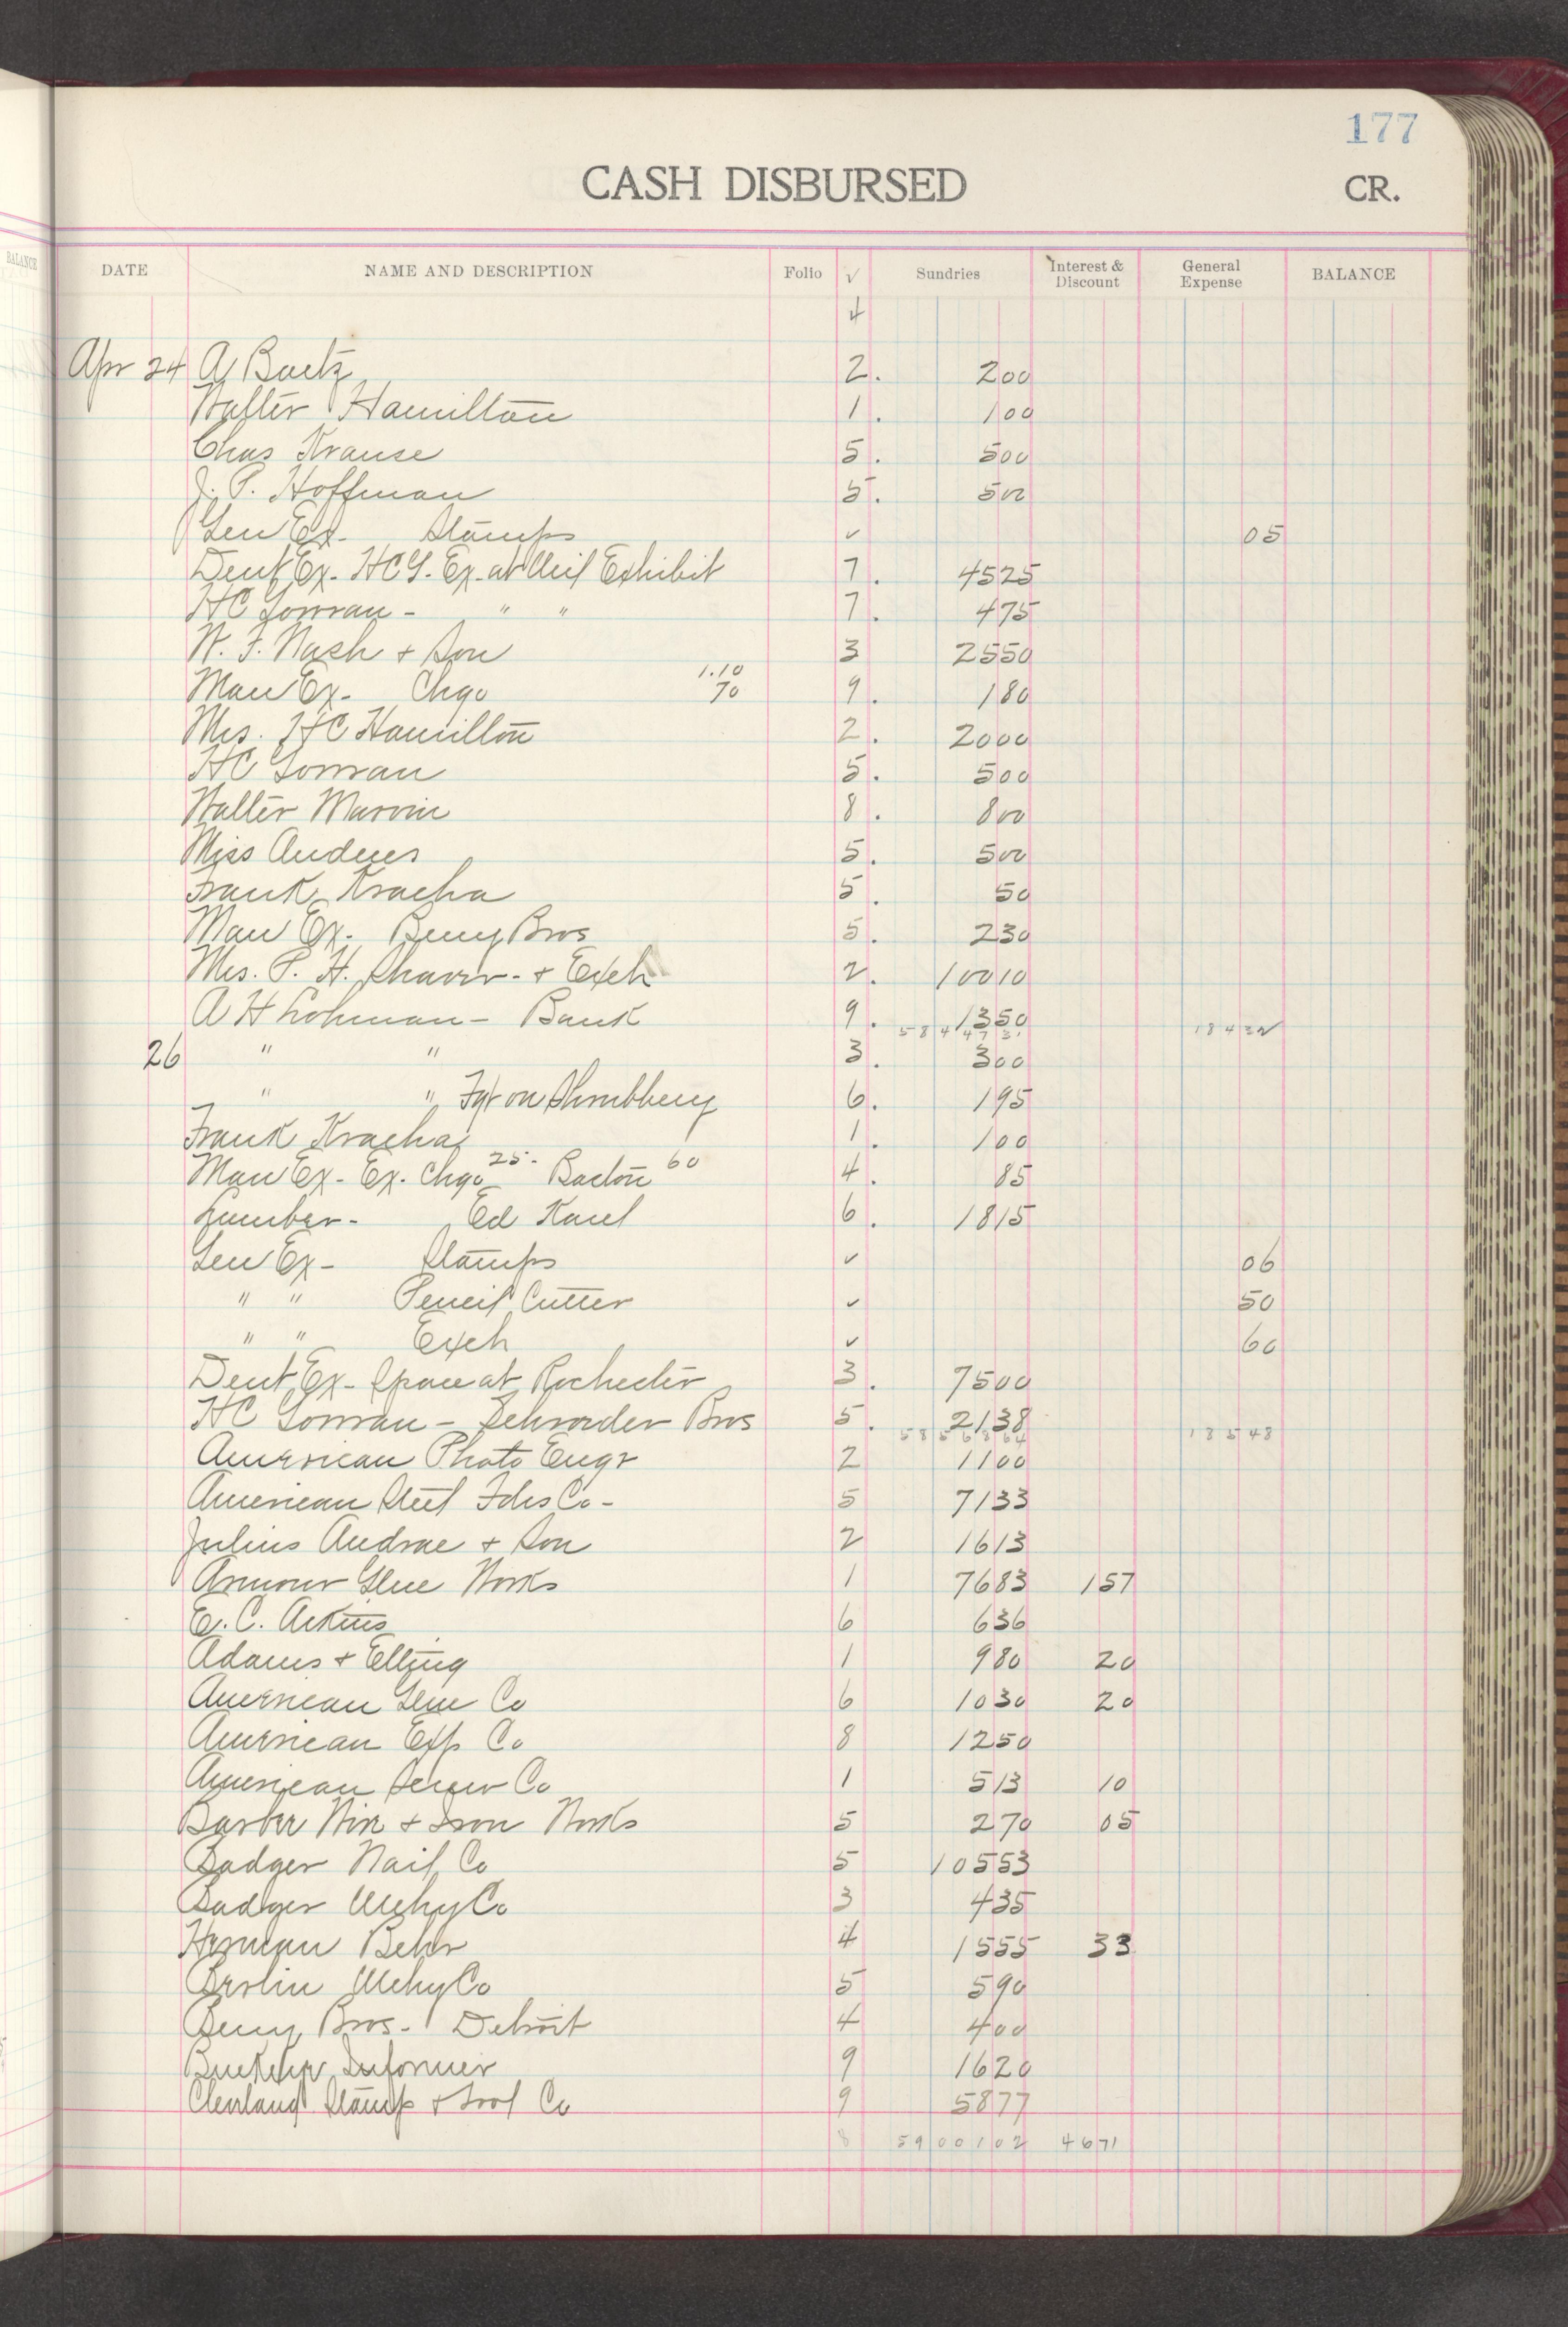 177
CASH DISBURSED CR.
BALANCE
DATE NAME AND DESCRIPTION Folio √ Sundries Interest & Discount General Expense BALANCE
4
Apr 24 A Baetz 2. 200
Walter Hamilton 1. 100
Chas Krause 5. 500
J. P. Hoffman 5. 500
Gen Ex- Stamps ✓ 05
Dent Ex- HCG. Ex- at Exhibit 7. 4525
HC Gorman - " " 7. 475
W. F. Nash + Son 3 2550
Man Ex- Chgo 1.10 70 9. 180
Mrs. HC Hamilton 2. 2000
HC Gorman 5. 500
Walter Marvin 8. 800
Miss Anderes 5. 500
Frank Kracha 5. 50
Man Ex- Berry Bros 5. 230
Mrs. P. H. Shaver - + Exch 2. 10010
A H Lohman - Bank 9. 1350
584473 18432
26 " " 3. 300
" " Fgt on Shrubbery 6. 195
Frank Kracha 1. 100
Man Ex- Ex. Chgo 25- Barton 60 4. 85
Lumber- Ed Karel 6. 1815
Gen Ex- Stamps ✓ 06
" " Pencil Cutter ✓ 50
" " Exch ✓ 60
Dent Ex- Space at Rochester 3. 7500
HC Gorman - Schroeder Bros 5. 2138
5856864 18548
American Photo Engr 2 1100
American Steel Fdrs Co- 5 7133
Julius Andrae + Son 2 1613
Armour Glue Works 1 7683 157
E. C. Atkins 6 636
Adams + Elting 1 980 20
American Glue Co 6 1030 20
American Exp Co 8 1250
American Screw Co 1 513 10
Barber Wire + Iron Works 5 270 05
Badger Nail Co 5 10553
Badger Mchy Co 3 435
Herman Behr 4 1555 33
Berlin Mchy Co 5 590
Berry Bros- Detroit 4 400
Informer 9 1620
Cleveland Stamp + Tool Co 9 5877
8 5900102 4671